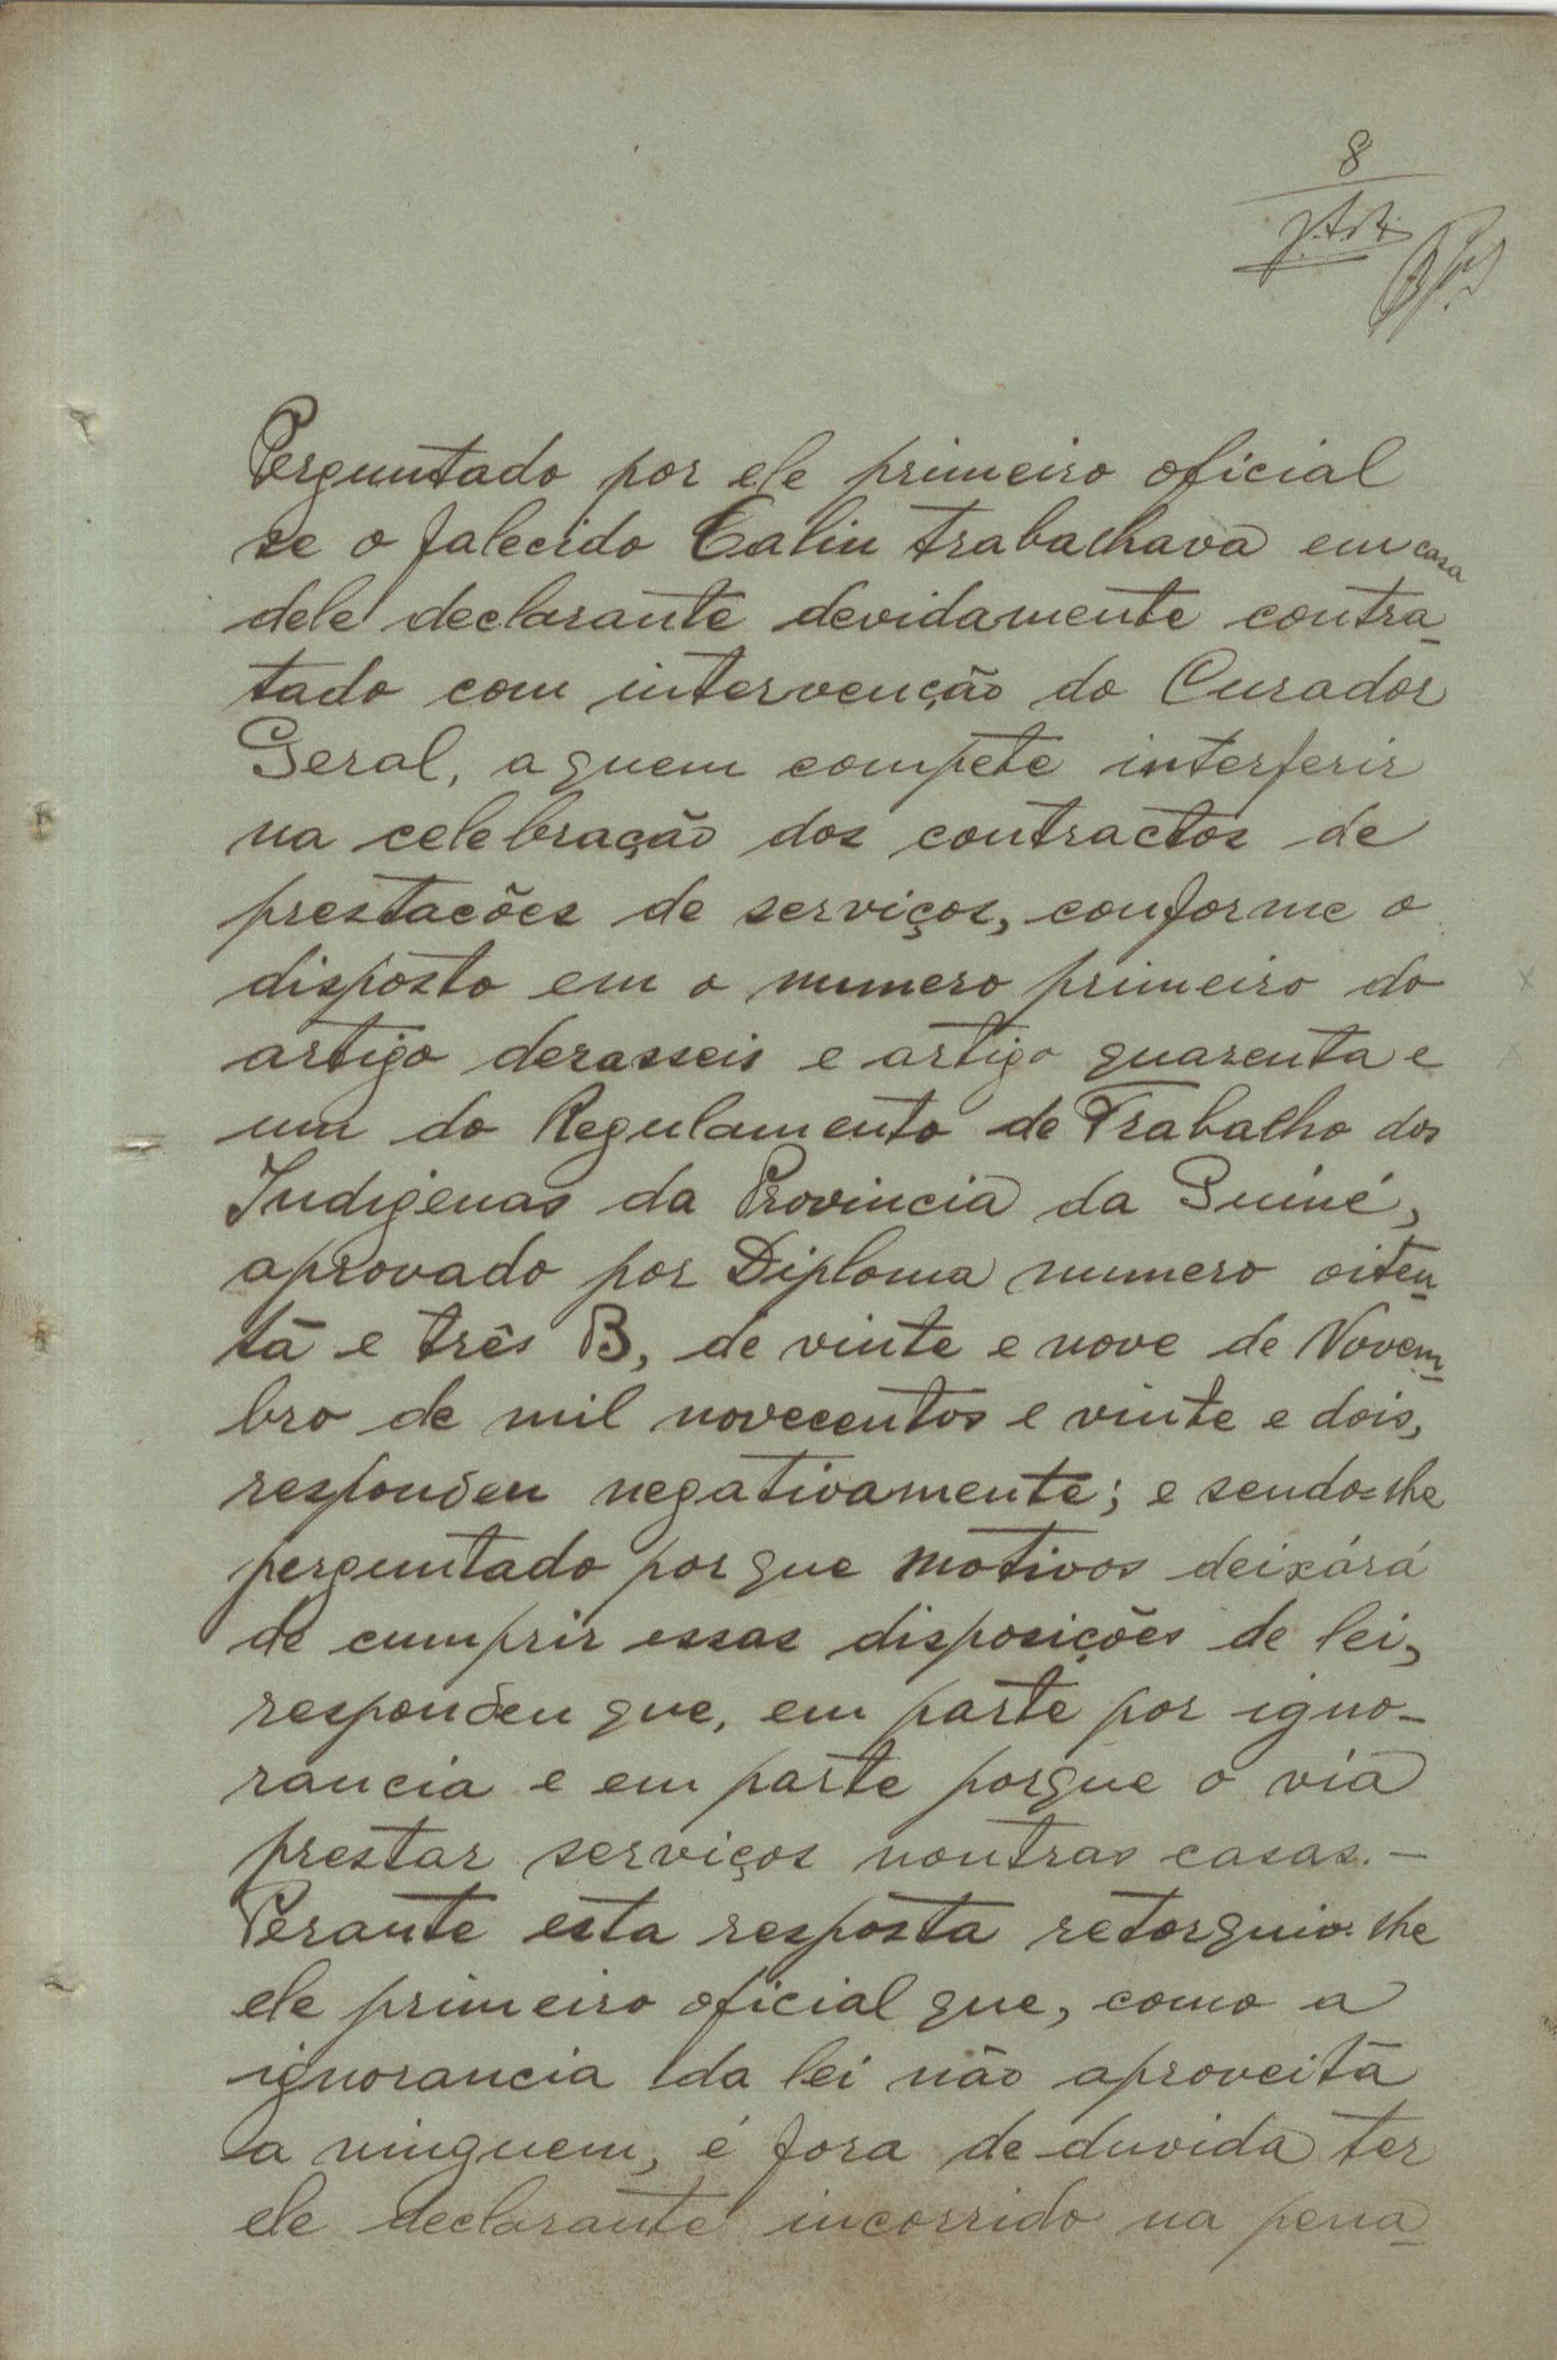 8
Perguntado por ele primeiro oficial
se o falecido Calin trabalhava em casa
dele declarante devidamente contra-
tado com intervenção do Curador
Geral, a quem compete interferir
na celebração dos contractos de
prestacões de serviços, conforme o
disposto em o numero primeiro do
artigo dezasseis e artigo quarenta e
um do Regulamento de Trabalho dos
Indigenas da Provincia da Guiné,
aprovado por Diploma numero oiten-
ta e três B, de vinte e nove de Novem-
bro de mil novecentos e vinte e dois,
respondeu negativamente; e sendo=lhe
perguntado por que motivos deixárá
de cumprir essas disposições de lei,
respondeu que, em parte por igno-
rancia e em parte porque o via
prestar serviços noutras casas. —
Perante esta resposta retorquio-lhe
ele primeiro oficial que, como a
ignorancia da lei não aproveita
a ninguem, é fora de duvida ter
ele declarante incorrido na pena-